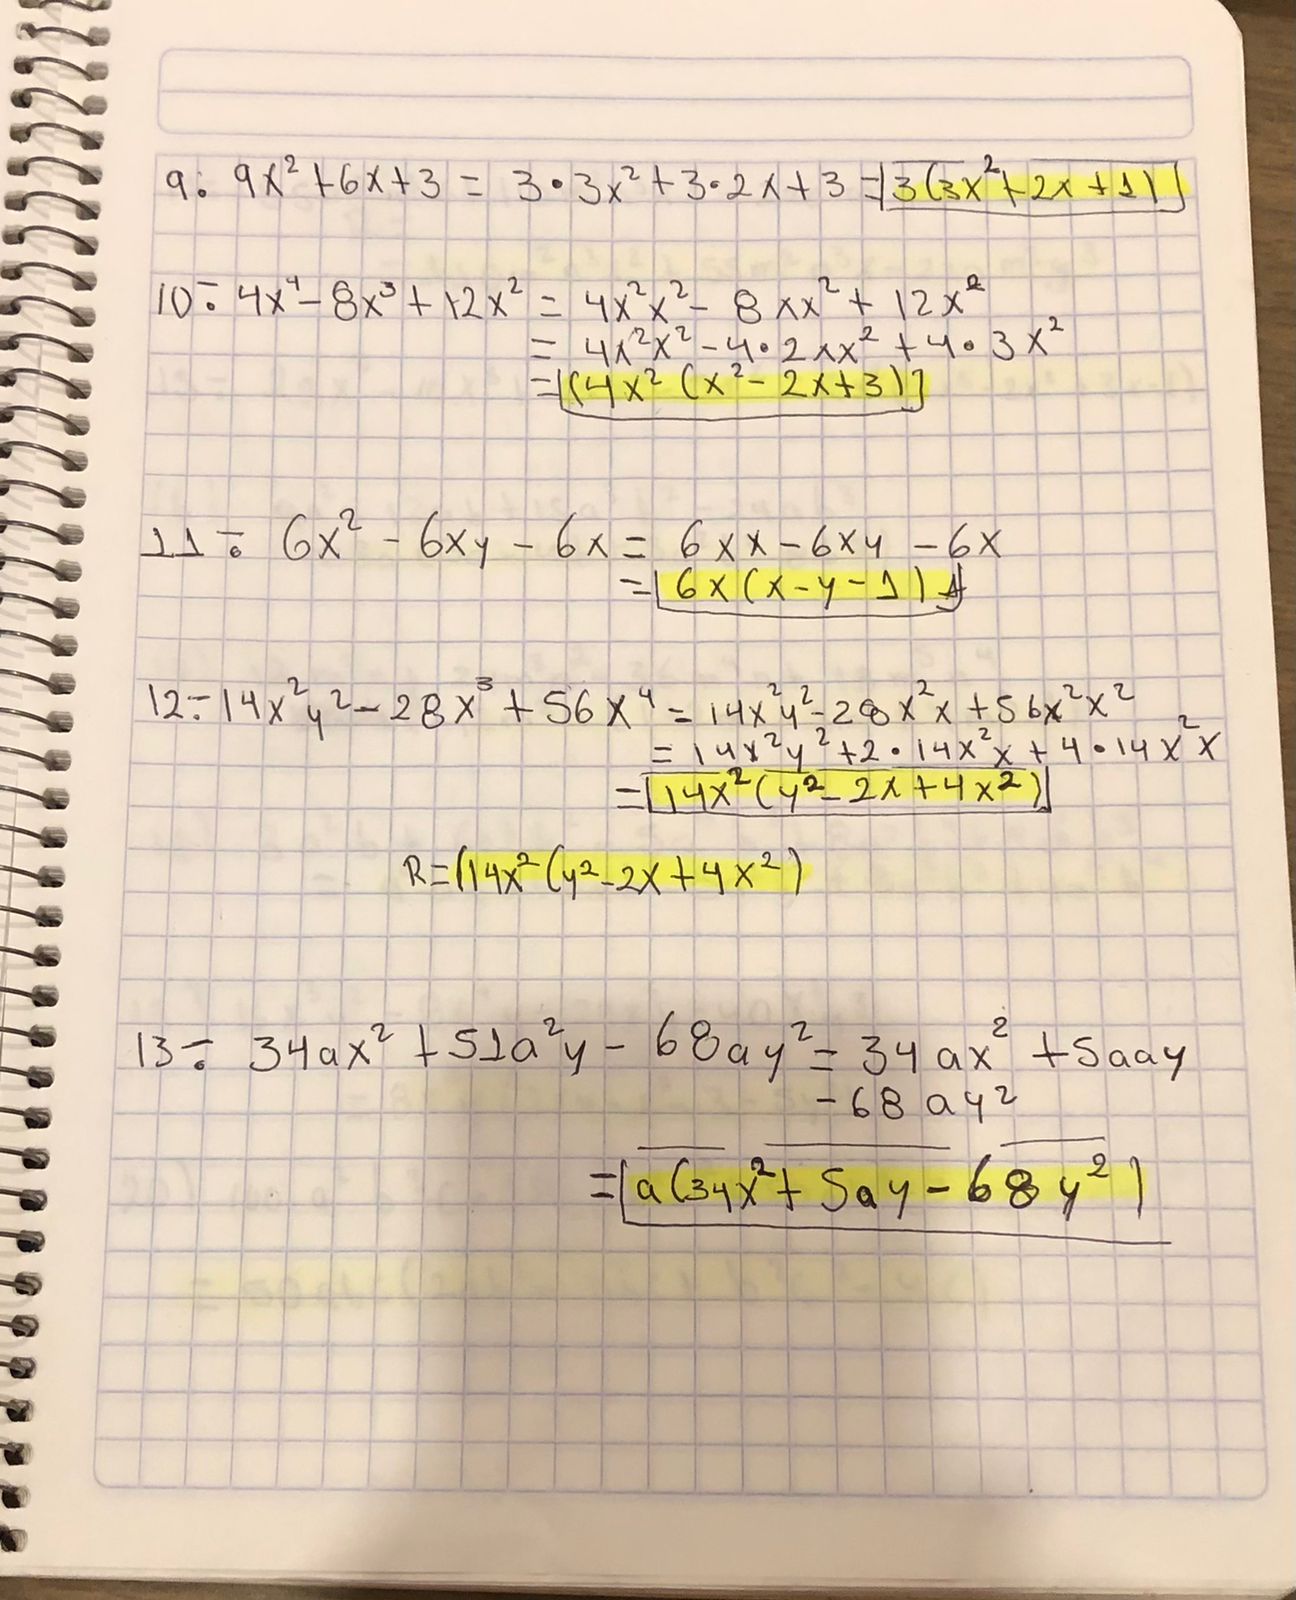 9: 9x² + 6x + 3 = 3 • 3x² + 3 • 2x + 3 = 3(3x² + 2x + 1)
10÷ 4x⁴ - 8x³ + 12x² = 4x²x² - 8xx² + 12x²
= 4x²x² - 4 • 2xx² + 4 • 3x²
= (4x² (x² - 2x + 3)
11÷ 6x² - 6xy - 6x = 6xx - 6xy - 6x
= 6x (x - y - 1)
12÷ 14x²y² - 28x³ + 56x⁴ = 14x²y² - 28x²x + 56x²x²
= 14x²y² + 2 • 14x²x + 4 • 14x²x
= 14x² (y² - 2x + 4x²)
R = (14x² (y² - 2x + 4x²)
13÷ 34ax² + 51a²y - 68ay² = 34ax² + 5aay
- 68ay²
= a(34x² + 5ay - 68y²)